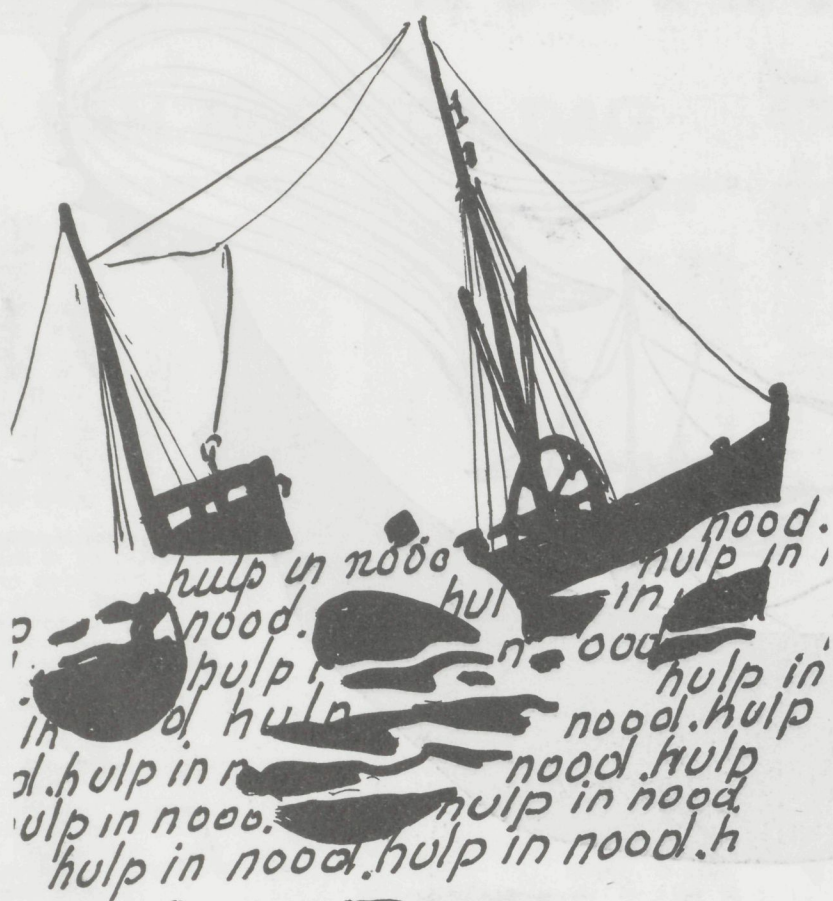 nood.
hulp in nood
hulp in
nood. hul in
hulp n ood
hulp in
in d hulp nood.hulp
d.hulp in n nood.hulp
ulp in nooo. hulp in nood
hulp in nood.hulp in nood.h